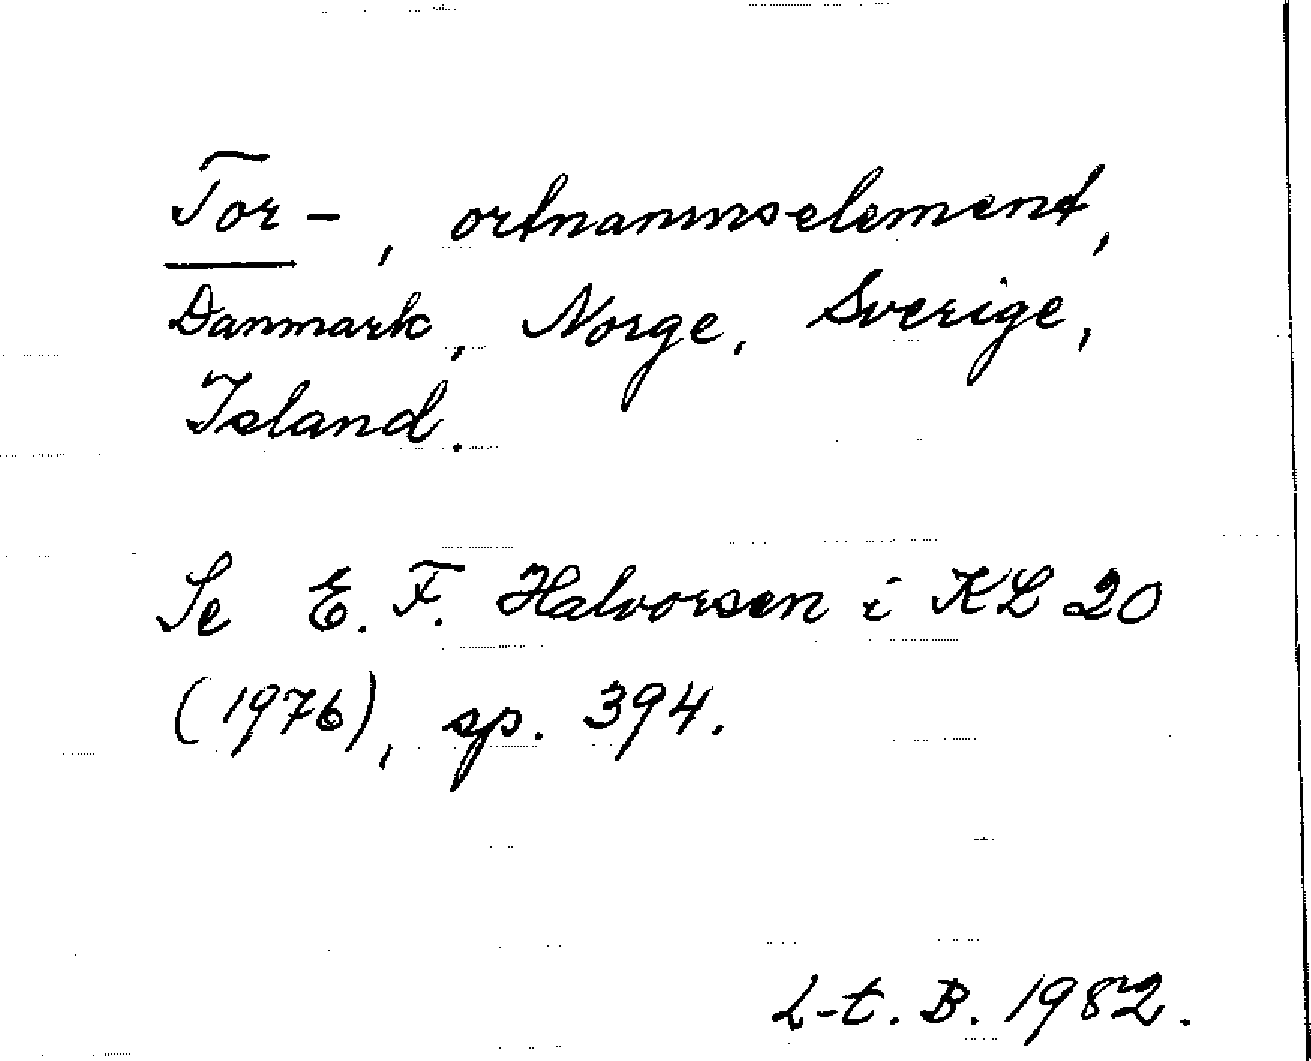 Tor-, ortnamnselement,
Danmark, Norge, Sverige,
Island.
Se E. F. Halvorsen i KL 20
(1976), sp. 394.
L-t. B. 1982.